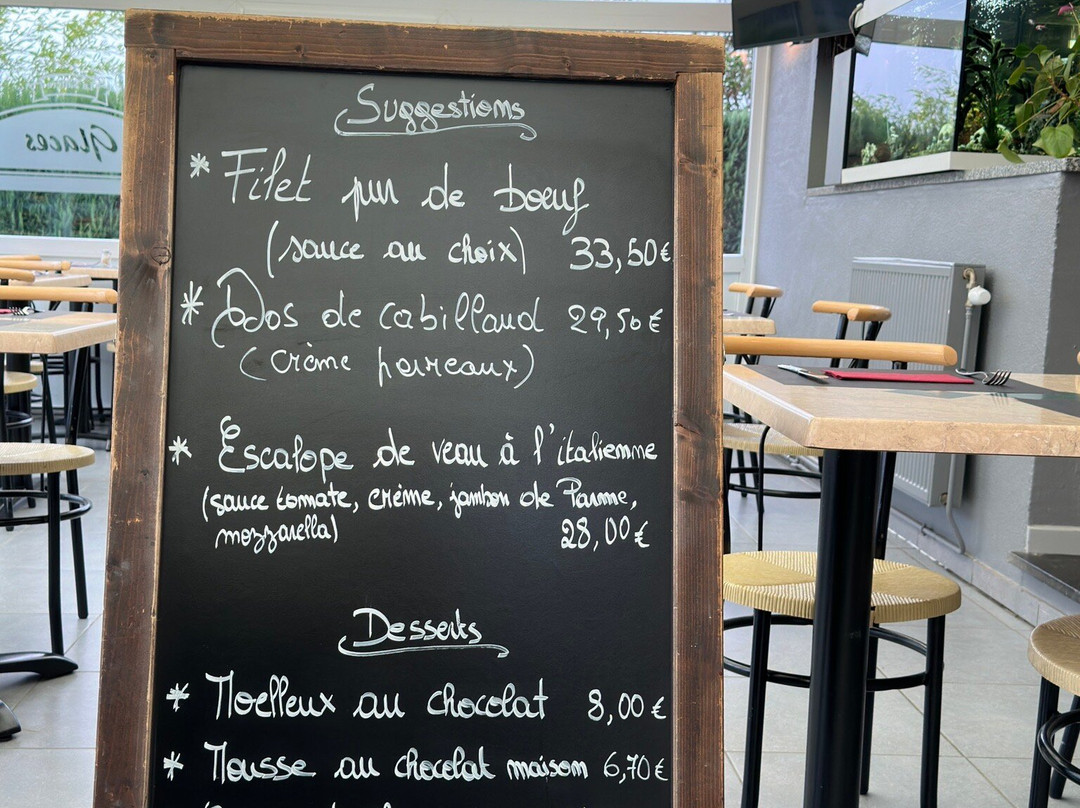 Glaces
Suggestions
* Filet pur de boeuf
(sauce au choix) 33,50€
* Dos de cabillaud 29,50€
(crème poireaux)
* Escalope de veau à l'italienne
(sauce tomate, crème, jambon de Parme,
mozzarella) 28,00€
Desserts
* Moelleux au chocolat 8,00€
* Mousse au chocolat maison 6,70€